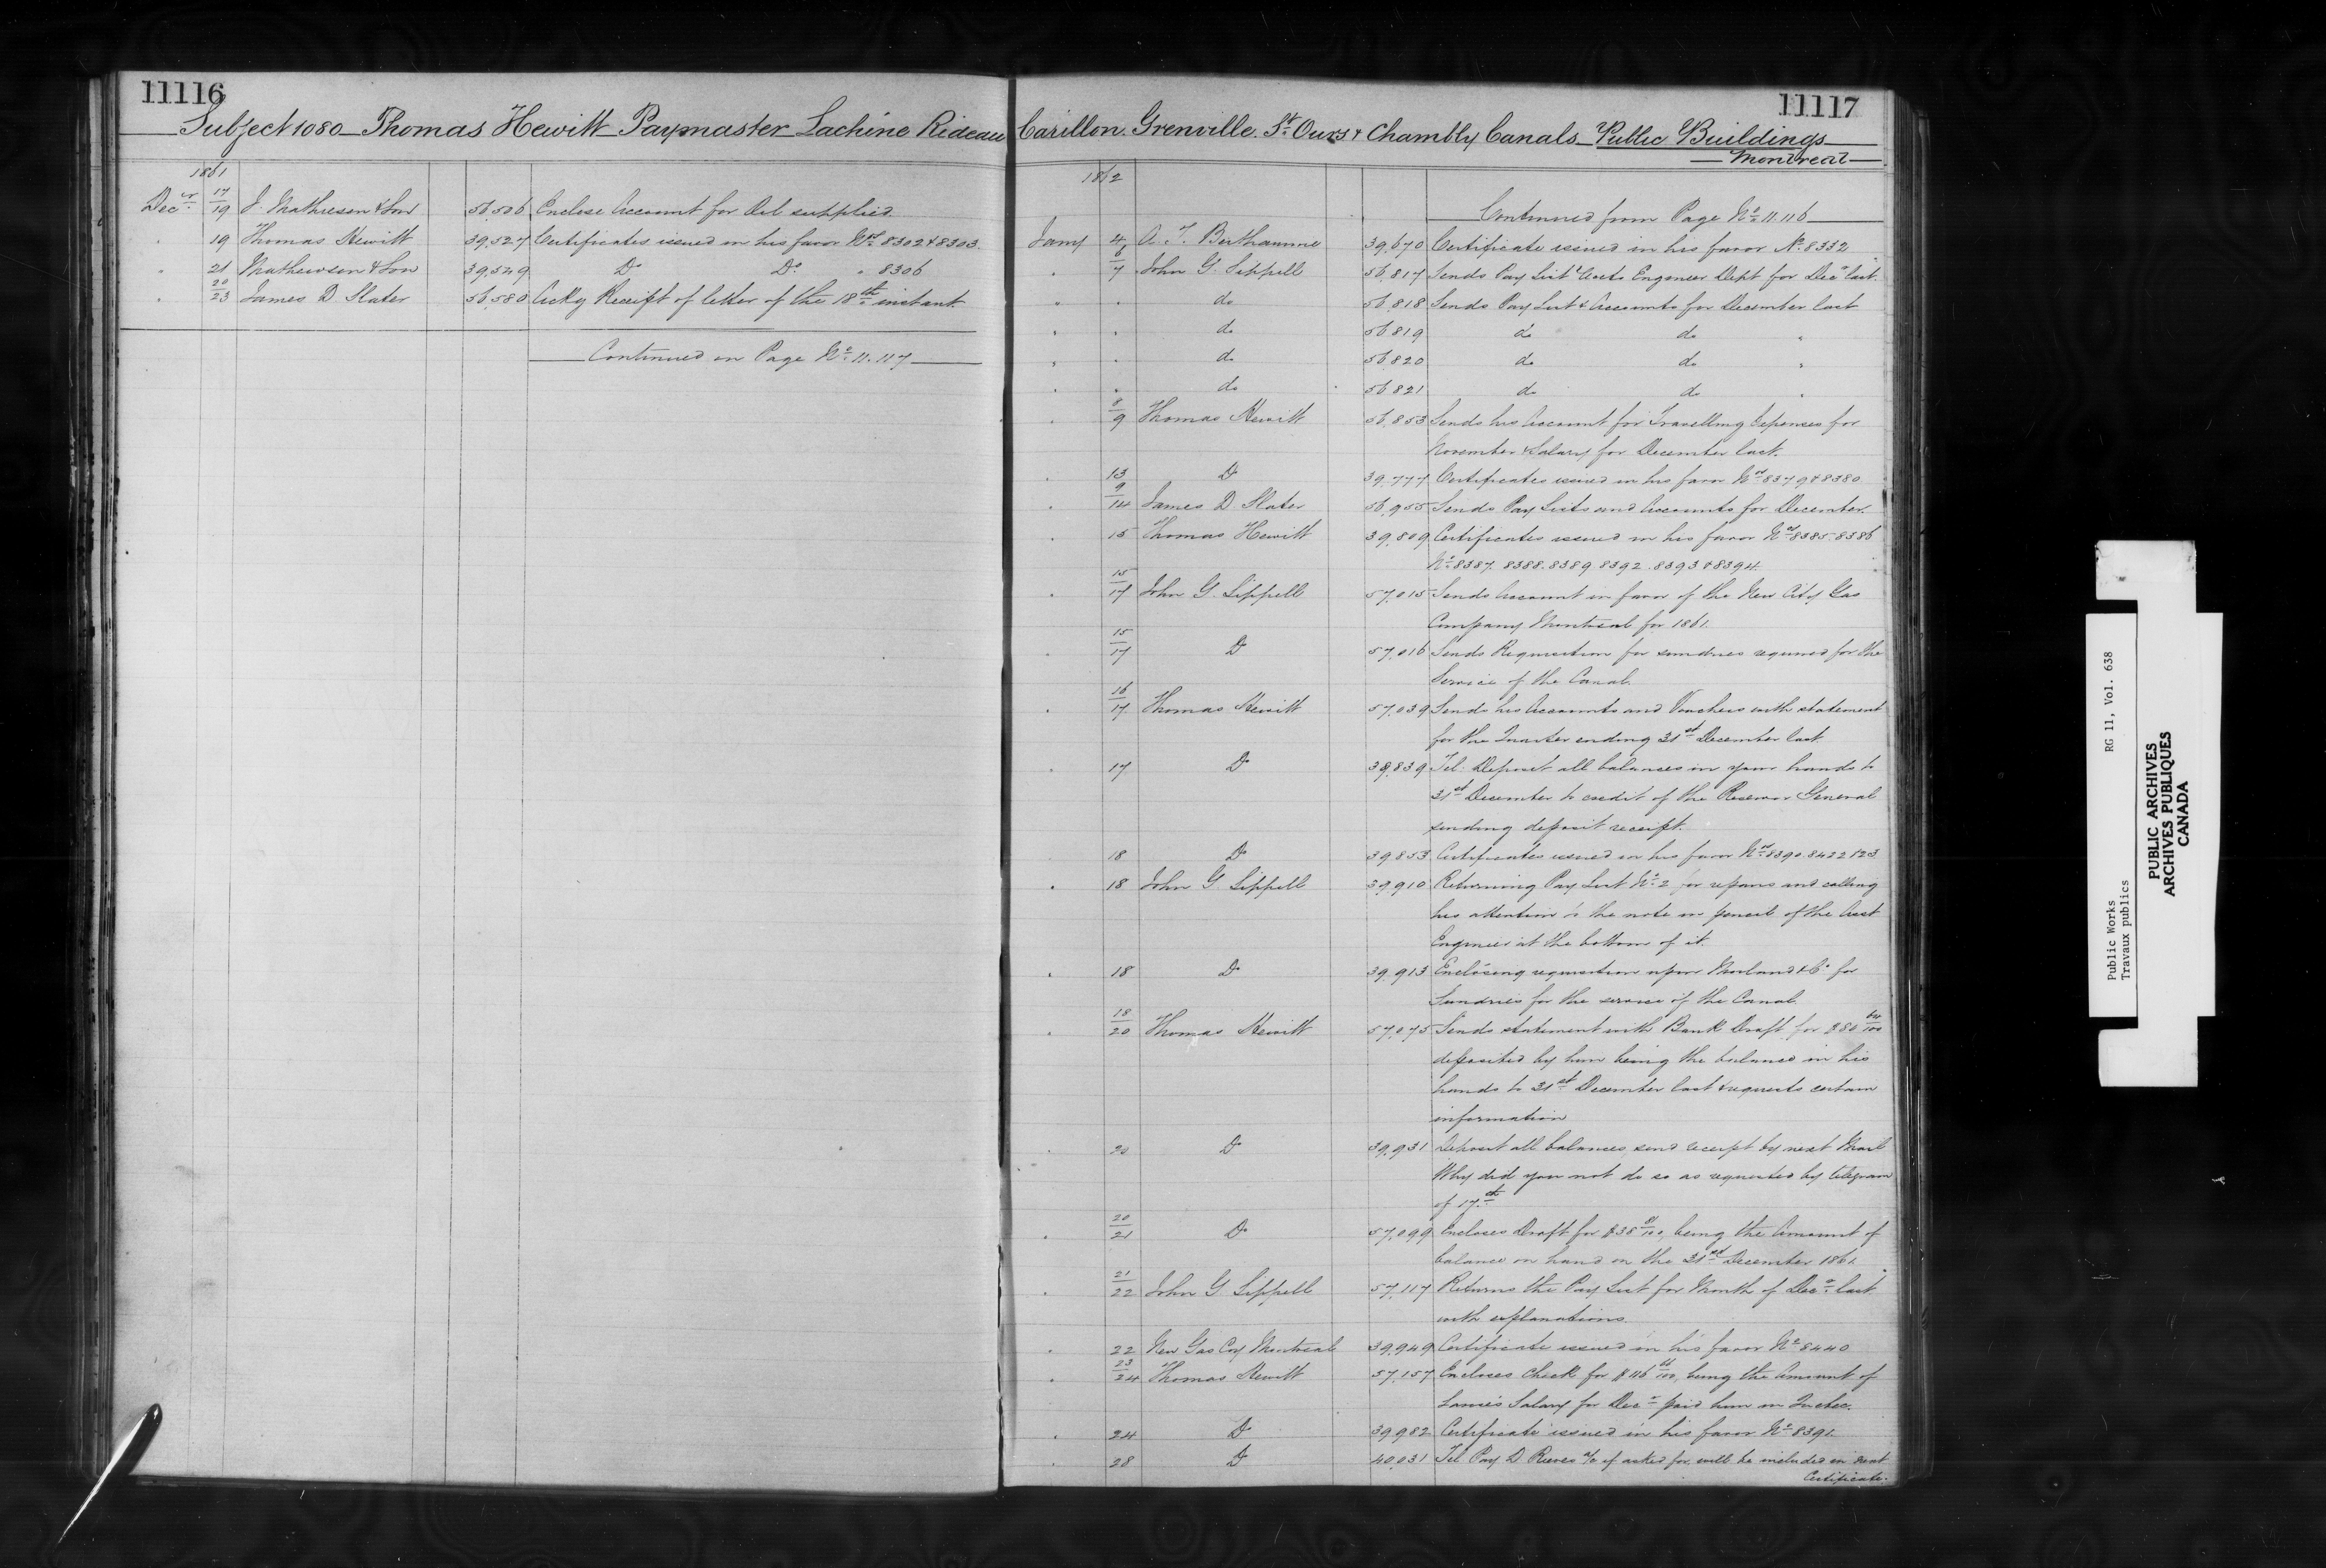 11116
Subject 1080 Thomas Hewitt Paymaster Lachine Rideau
1861
Decr. 17/19 J. Mathewson & Son 56,506 Enclose Account for Oil supplied.
" 19 Thomas Hewitt 39,527 Certificates issued in his favor Nos. 8302 & 8303
" 21 Mathewson & Son 39,549 Do Do. " 8306
" 20/23 James D Slater 56,580 Ackg Receipt of letter of the 18th instant
Continued on Page No. 11.117
11117
Carillon. Grenville. St. Ours & Chambly Canals Public Buildings
Montreal
1862
Continued from Page No. 11.116
Jany 4 A. T. Berthaume 39,670 Certificate issued in his favor No. 8332
" 6/7 John G. Sippell 56,817 Sends Pay List & Accts Engineer Dept for Decr last.
" " do 56,818 Sends Pay List & Accounts for December last
" " do 56,819 do do "
" " do 56,820 do do "
" " do 56,821 do do "
" 8/9 Thomas Hewitt 56,853 Sends his Account for Travelling Expenses for
November & Salary for December last.
" 13 Do 39,777 Certificates issued in his favor Nos. 8379 & 8380
" 9/14 James D. Slater 56,955 Sends Pay Lists and Accounts for December.
" 15 Thomas Hewitt 39,809 Certificates issued in his favor Nos. 8385 8386
No. 8387. 8388. 8389 8392. 8393 & 8394.
" 15/17 John G. Sippell 57,015 Sends Account in favor of the New City Gas
Company Montreal for 1861.
" 15/17 Do 57,016 Sends Requisition for sundries required for the
Service of the Canal.
" 16/17 Thomas Hewitt 57,039 Sends his Accounts and Vouchers with statement
for the Quarter ending 31st December last
" 17 Do 39,839 Tel. Deposit all balances in your hands to
31st December to credit of the Receiver General
sending deposit receipt.
18 Do 39,853 Certificates issued in his favor Nos. 8390. 8422 & 23
" 18 John G. Sippell 39,910 Returning Pay List No. 2 for repairs and calling
his attention to the note in pencil of the Asst
Engineer at the bottom of it.
" 18 Do 39,913 Enclosing requisition upon Morland & Co. for
Sundries for the service of the Canal.
" 18/20 Thomas Hewitt 57,075 Sends statement with Bank Draft for $80 64/100
deposited by him being the balance in his
hands to 31st December last & requests certain
information
" 20 Do 39,931 Deposit all balances, send receipt by next Mail
Why did you not do so as requested by telegram
of 17th
" 20/21 Do 57,099 Encloses Draft for being the Amount of
balance on hand on the 31st December 1861.
" 21/22 John G Sippell 57,117 Returns the Pay List for Month of Decr. last
with explanations.
" 22 New Gas Coy Montreal 39,949 Certificate issued in his favor No. 8440
" 23/24 Thomas Hewitt 57,157 Encloses Check for being the Amount of
Salary for Decr. paid him in Quebec.
" 24 Do 39,982 Certificate issued in his favor No. 8391.
" 28 Do 40,031 Tel Pay D. Reeves a/c if asked for, will be included in next
Certificate.
Public Works RG 11, Vol. 638
Travaux publics
PUBLIC ARCHIVES
ARCHIVES PUBLIQUES
CANADA